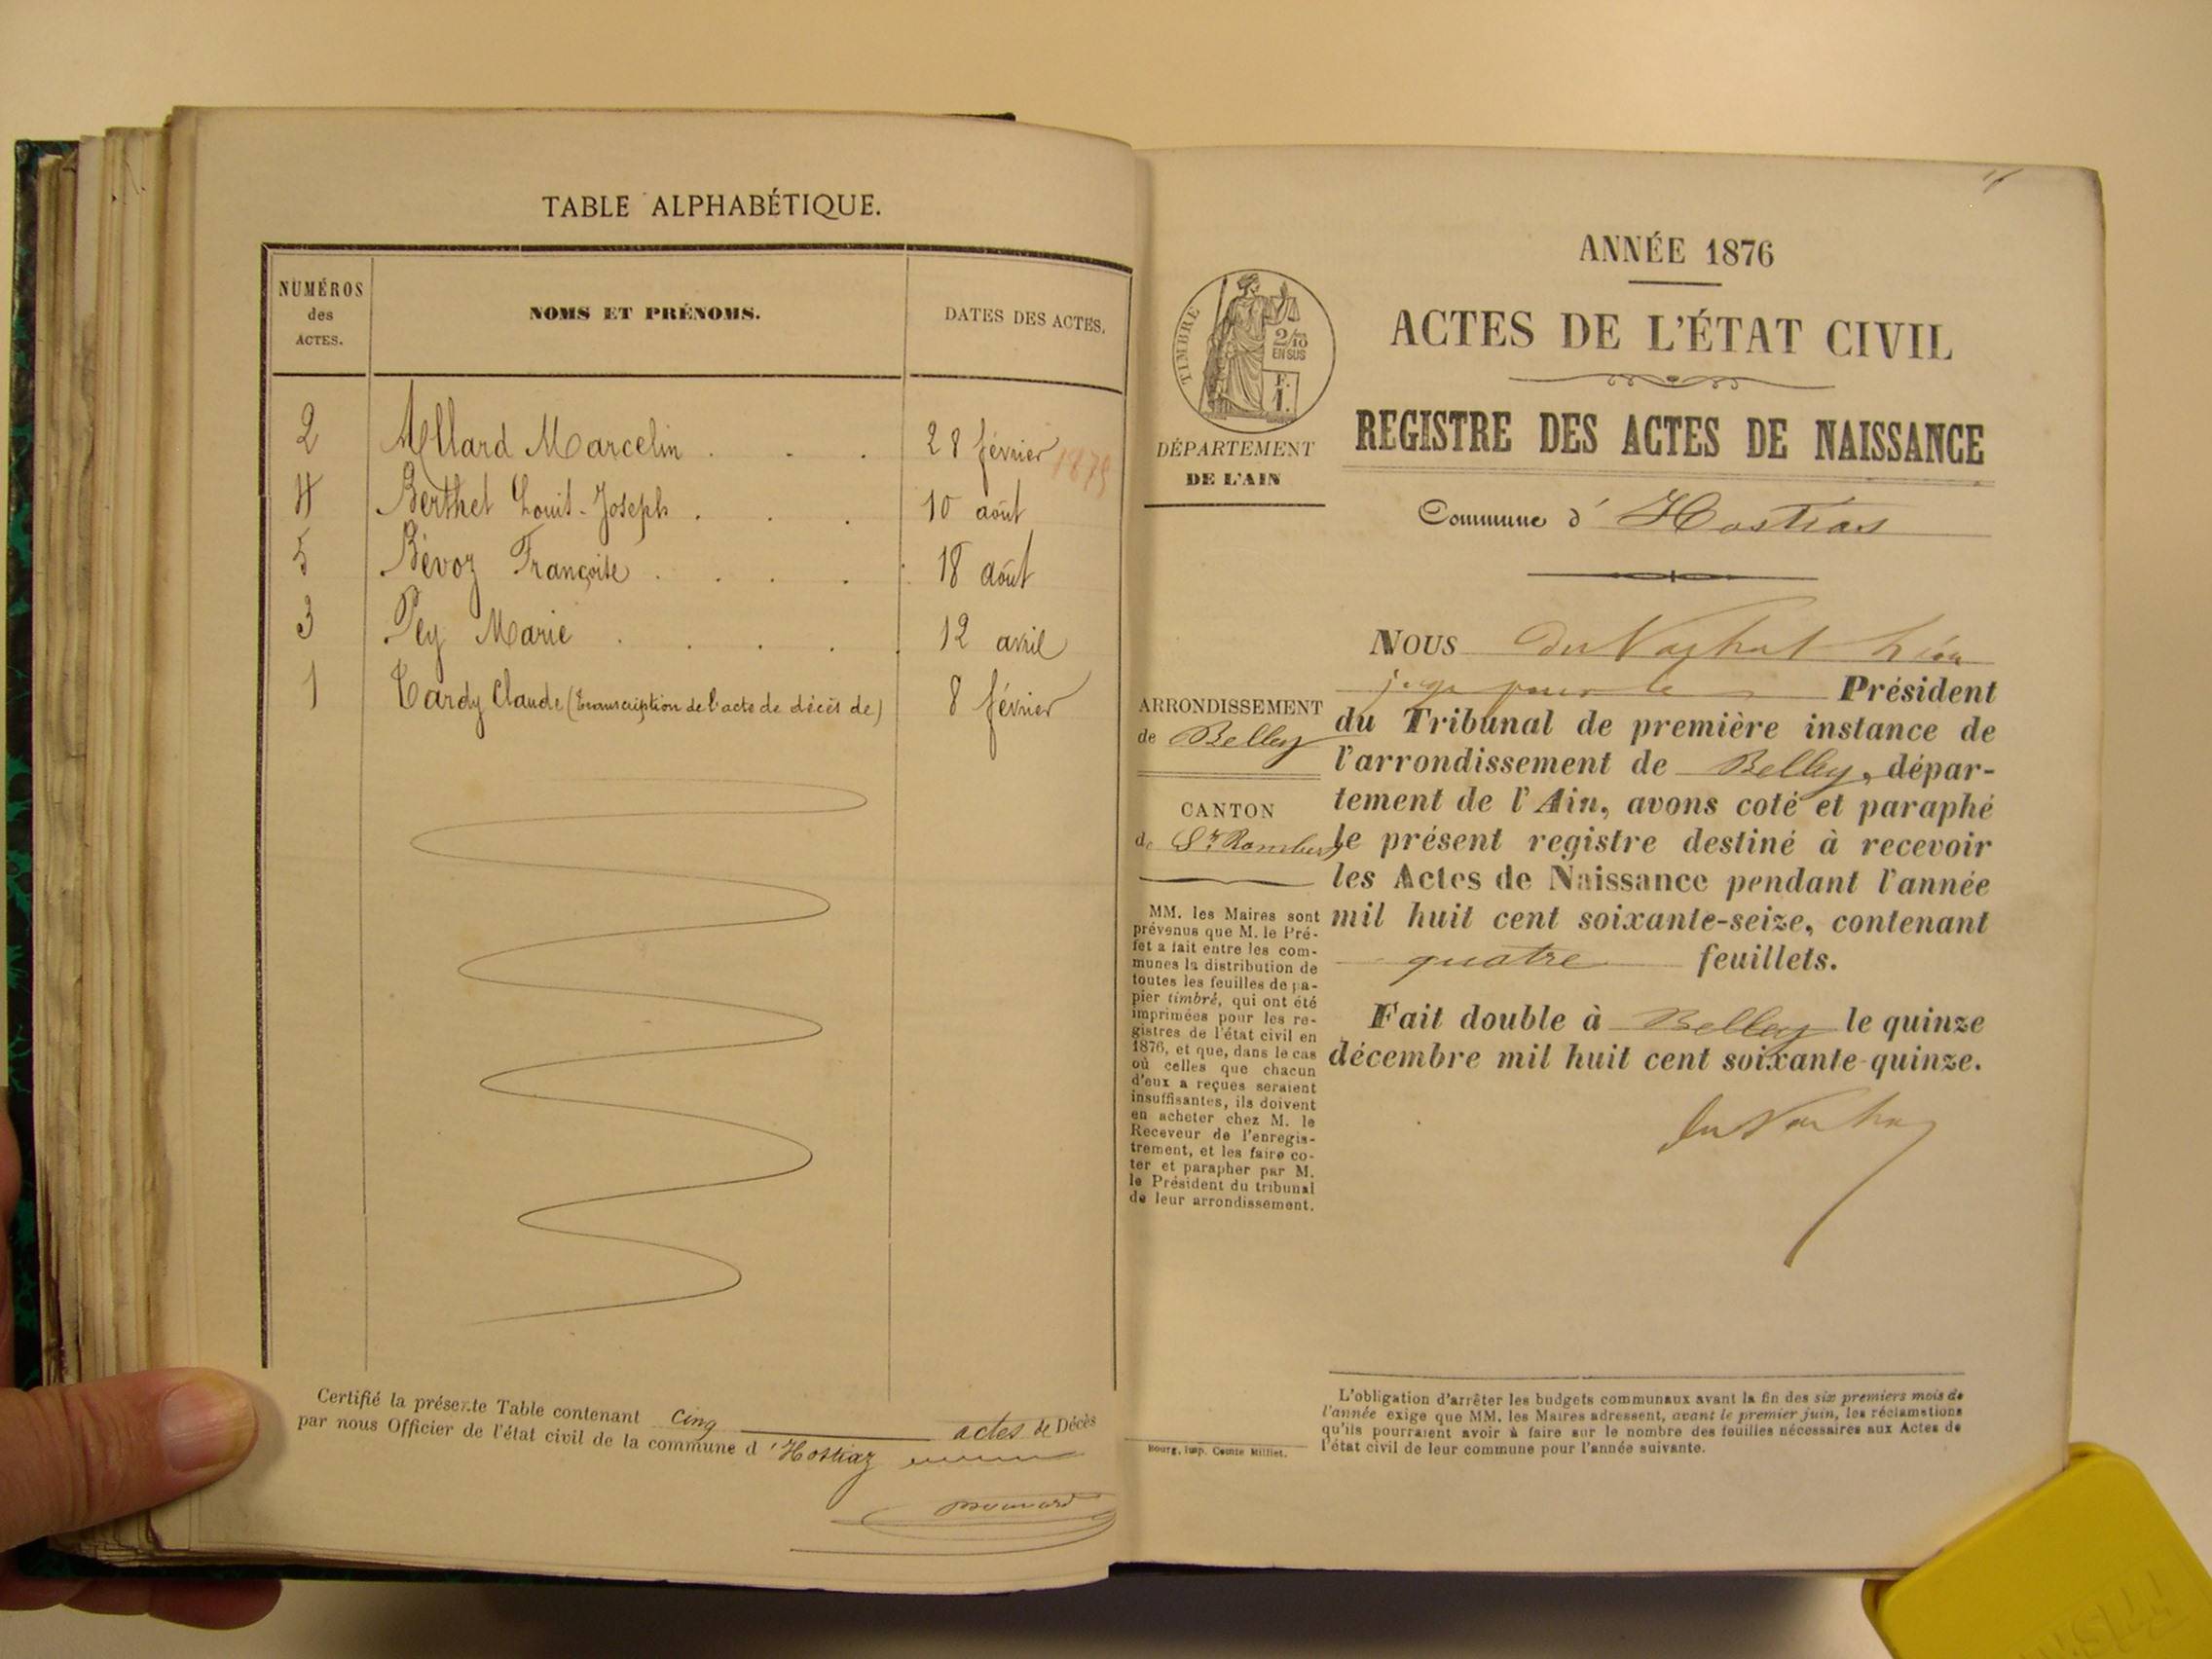 TABLE ALPHABÉTIQUE.
NUMÉROS des ACTES.
NOMS ET PRÉNOMS.
DATES DES ACTES.
2 Allard Marcelin . . . 28 février 1875
4 Berthet Louis-Joseph . . . 10 août
5 Bévoz Françoise . . . . 18 août
3 Pey Marie . . . . . 12 avril
1 Tardy Claude (transcription de l'acte de décès de) 8 février
Certifié la présente Table contenant cinq actes de Décès
par nous Officier de l'état civil de la commune d'Hostiaz
ANNÉE 1876
ACTES DE L'ÉTAT CIVIL
REGISTRE DES ACTES DE NAISSANCE
Commune d' Hostias
TIMBRE
2/10
EN SUS
F.
1.
DÉPARTEMENT
DE L'AIN
ARRONDISSEMENT
de Belley
CANTON
de St Rambert
MM. les Maires sont
prévenus que M. le Pré-
fet a fait entre les com-
munes la distribution de
toutes les feuilles de pa-
pier timbré, qui ont été
imprimées pour les re-
gistres de l'état civil en
1876, et que, dans le cas
où celles que chacun
d'eux a reçues seraient
insuffisantes, ils doivent
en acheter chez M. le
Receveur de l'enregis-
trement, et les faire co-
ter et parapher par M.
le Président du tribunal
de leur arrondissement.
Bourg, imp. Comte Milliet.
NOUS
juge pour le Président
du Tribunal de première instance de
l'arrondissement de Belley, dépar-
tement de l'Ain, avons coté et paraphé
le présent registre destiné à recevoir
les Actes de Naissance pendant l'année
mil huit cent soixante-seize, contenant
quatre feuillets.
Fait double à Belley le quinze
décembre mil huit cent soixante-quinze.
L'obligation d'arrêter les budgets communaux avant la fin des six premiers mois de
l'année exige que MM. les Maires adressent, avant le premier juin, les réclamations
qu'ils pourraient avoir à faire sur le nombre des feuilles nécessaires aux Actes de
l'état civil de leur commune pour l'année suivante.